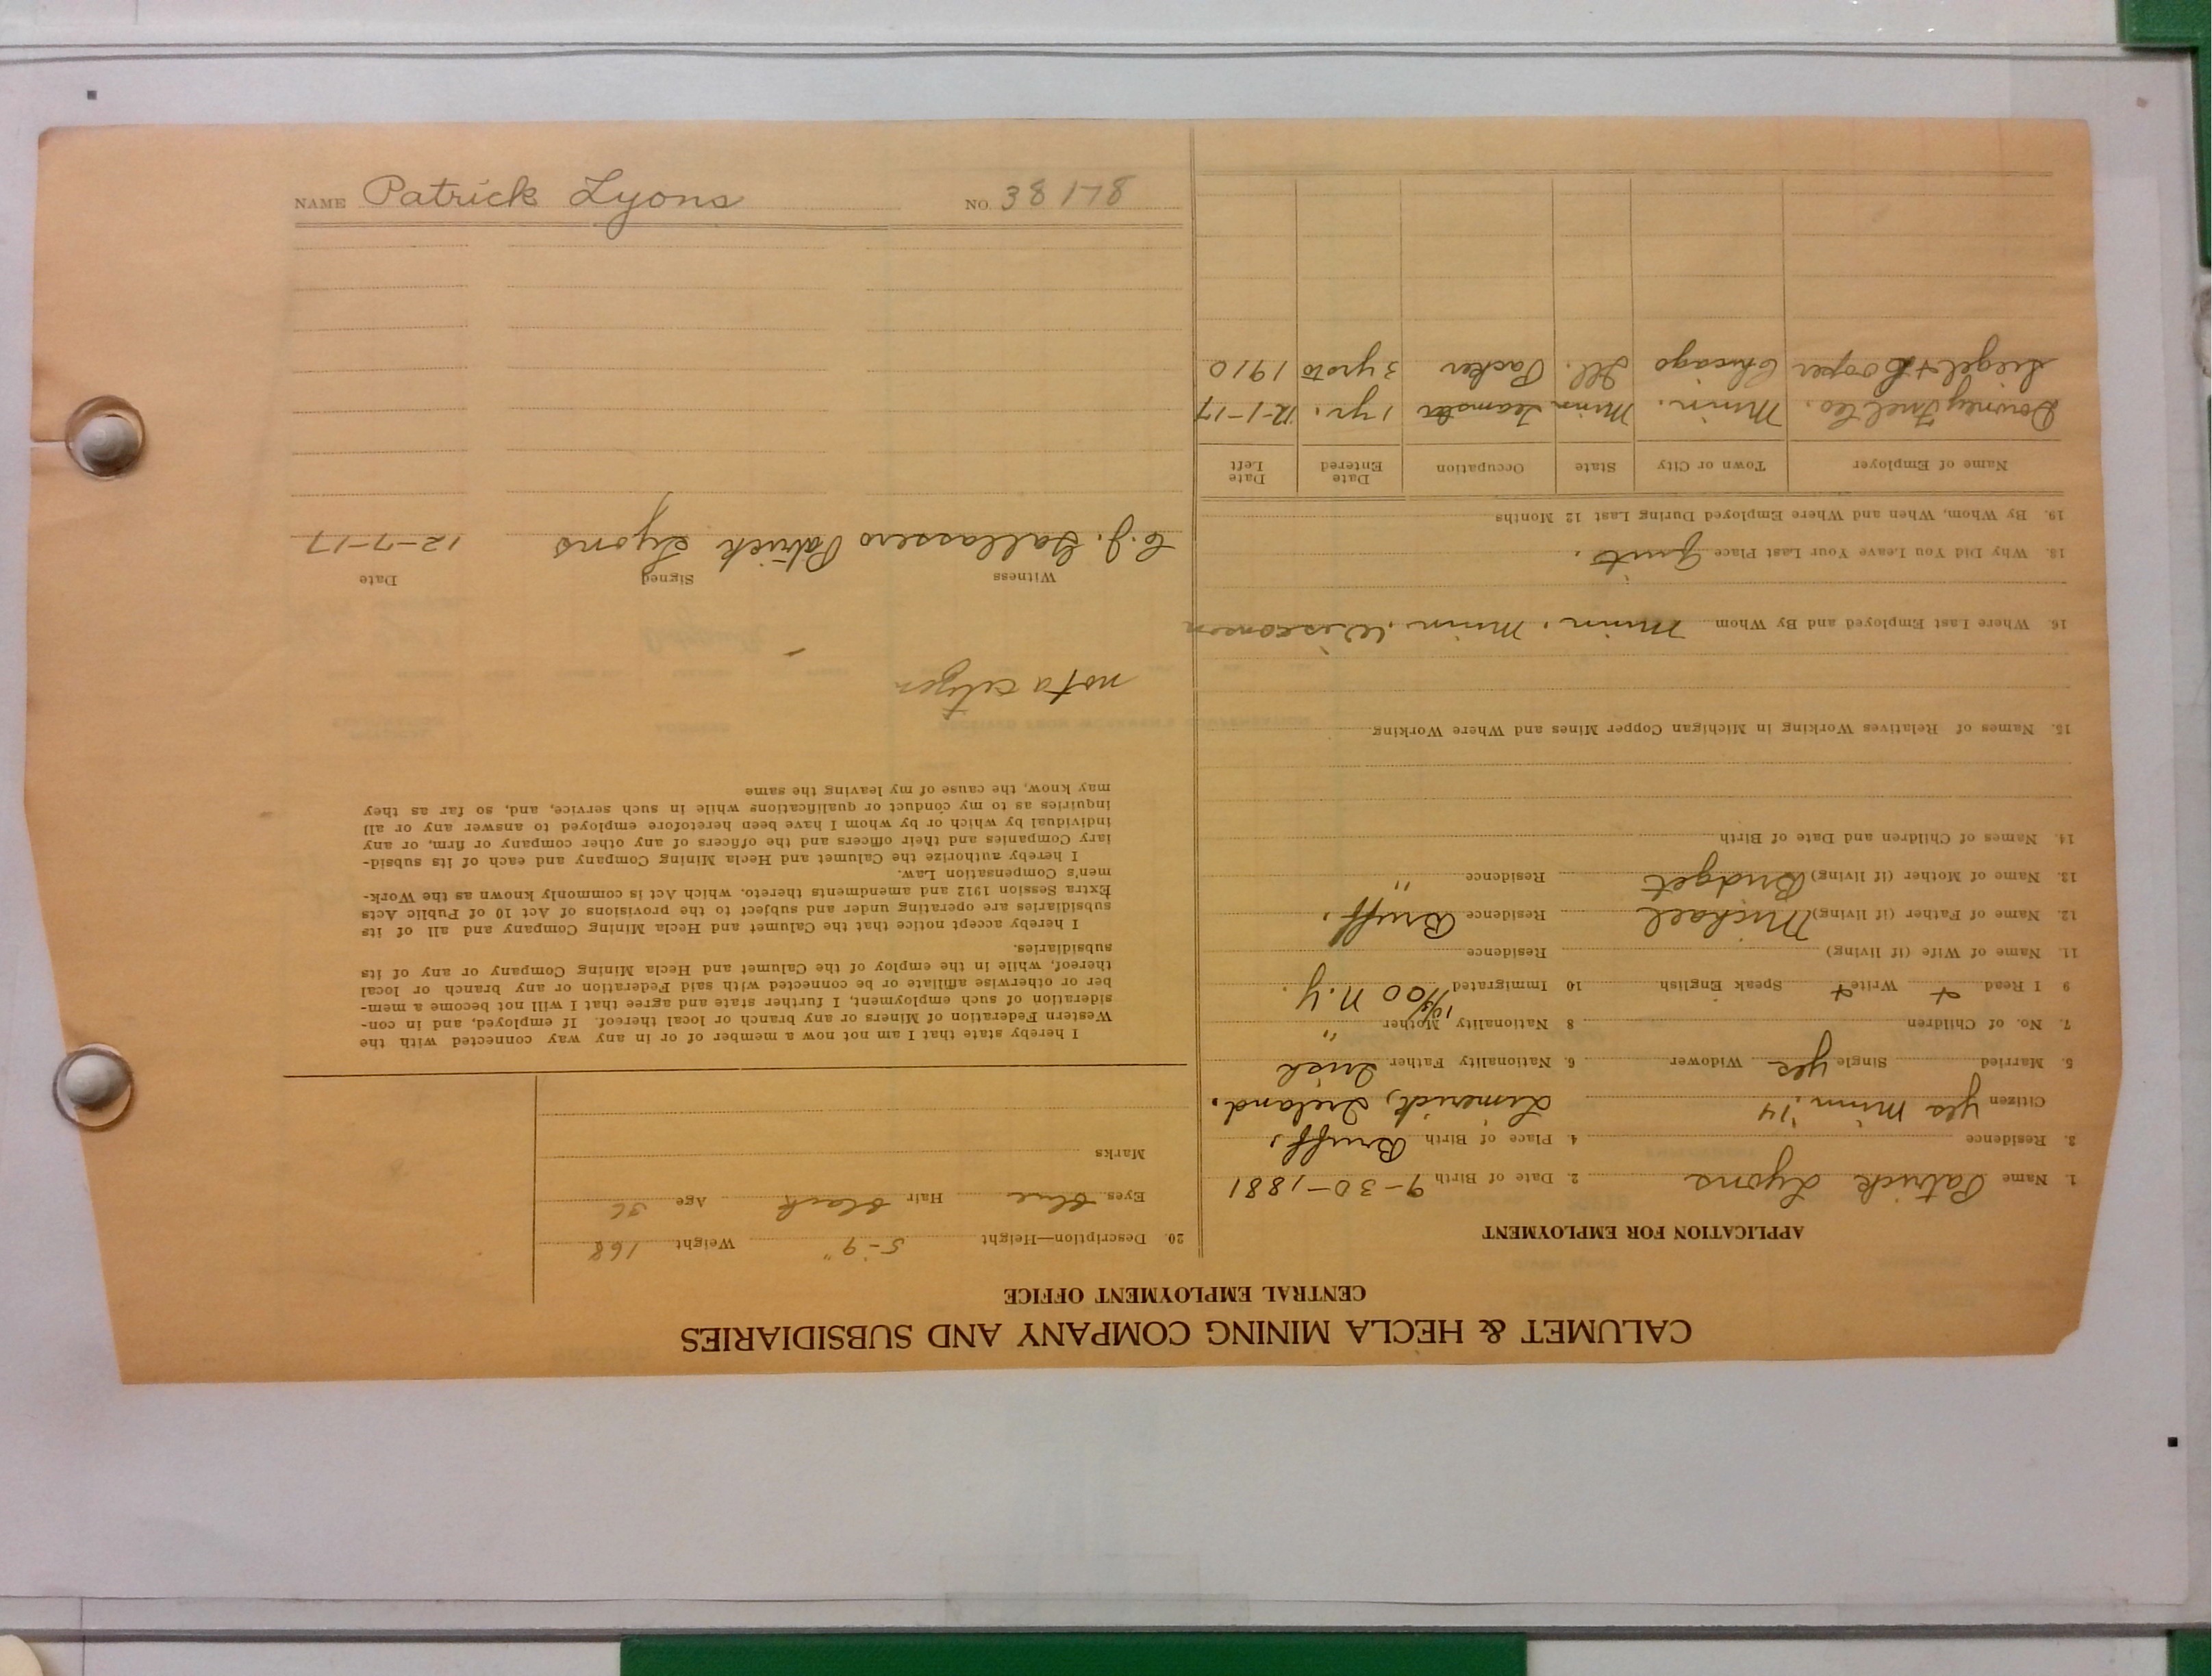 CALUMET & HECLA MINING COMPANY AND SUBSIDIARIES
CENTRAL EMPLOYMENT OFFICE
APPLICATION FOR EMPLOYMENT
1. Name Patrick Lyons 2. Date of Birth 9-30-1881
3. Residence 4. Place of Birth Bruff,
Citizen yes Minn. '14 Limerick, Ireland.
5. Married Single yes Widower 6. Nationality Father Irish
7. No. of Children 8 Nationality Mother "
9 I Read + Write + Speak English 10 Immigrated 1900 N.Y.
11. Name of Wife (if living) Residence
12. Name of Father (if living) Michael Residence Bruff.
13. Name of Mother (if living) Bridget Residence "
14. Names of Children and Date of Birth
15. Names of Relatives Working in Michigan Copper Mines and Where Working
16. Where Last Employed and By Whom Minn. Minn. Wisconsin
18. Why Did You Leave Your Last Place Quit.
19. By Whom, When and Where Employed During Last 12 Months
Name of Employer Town or City State Occupation Date Entered Date Left
Downey Fuel Co. Minn. Minn Teamster 1 yr. 12-1-17
Siegel & Cooper Chicago Ill. Packer 3 yrs to 1910
20. Description—Height 5-9" Weight 168
Eyes blue Hair black Age 36
Marks
I hereby state that I am not now a member of or in any way connected with the
Western Federation of Miners or any branch or local thereof. If employed, and in con-
sideration of such employment, I further state and agree that I will not become a mem-
ber or otherwise affiliate or be connected with said Federation or any branch or local
thereof, while in the employ of the Calumet and Hecla Mining Company or any of its
subsidiaries.
I hereby accept notice that the Calumet and Hecla Mining Company and all of its
subsidiaries are operating under and subject to the provisions of Act 10 of Public Acts
Extra Session 1912 and amendments thereto, which Act is commonly known as the Work-
men's Compensation Law.
I hereby authorize the Calumet and Hecla Mining Company and each of its subsid-
iary Companies and their officers and the officers of any other company or firm, or any
individual by which or by whom I have been heretofore employed to answer any or all
inquiries as to my conduct or qualifications while in such service, and, so far as they
may know, the cause of my leaving the same
not a citizen
Witness Signed Date
C.J. Gallassero Patrick Lyons 12-7-17
NAME Patrick Lyons NO. 38178